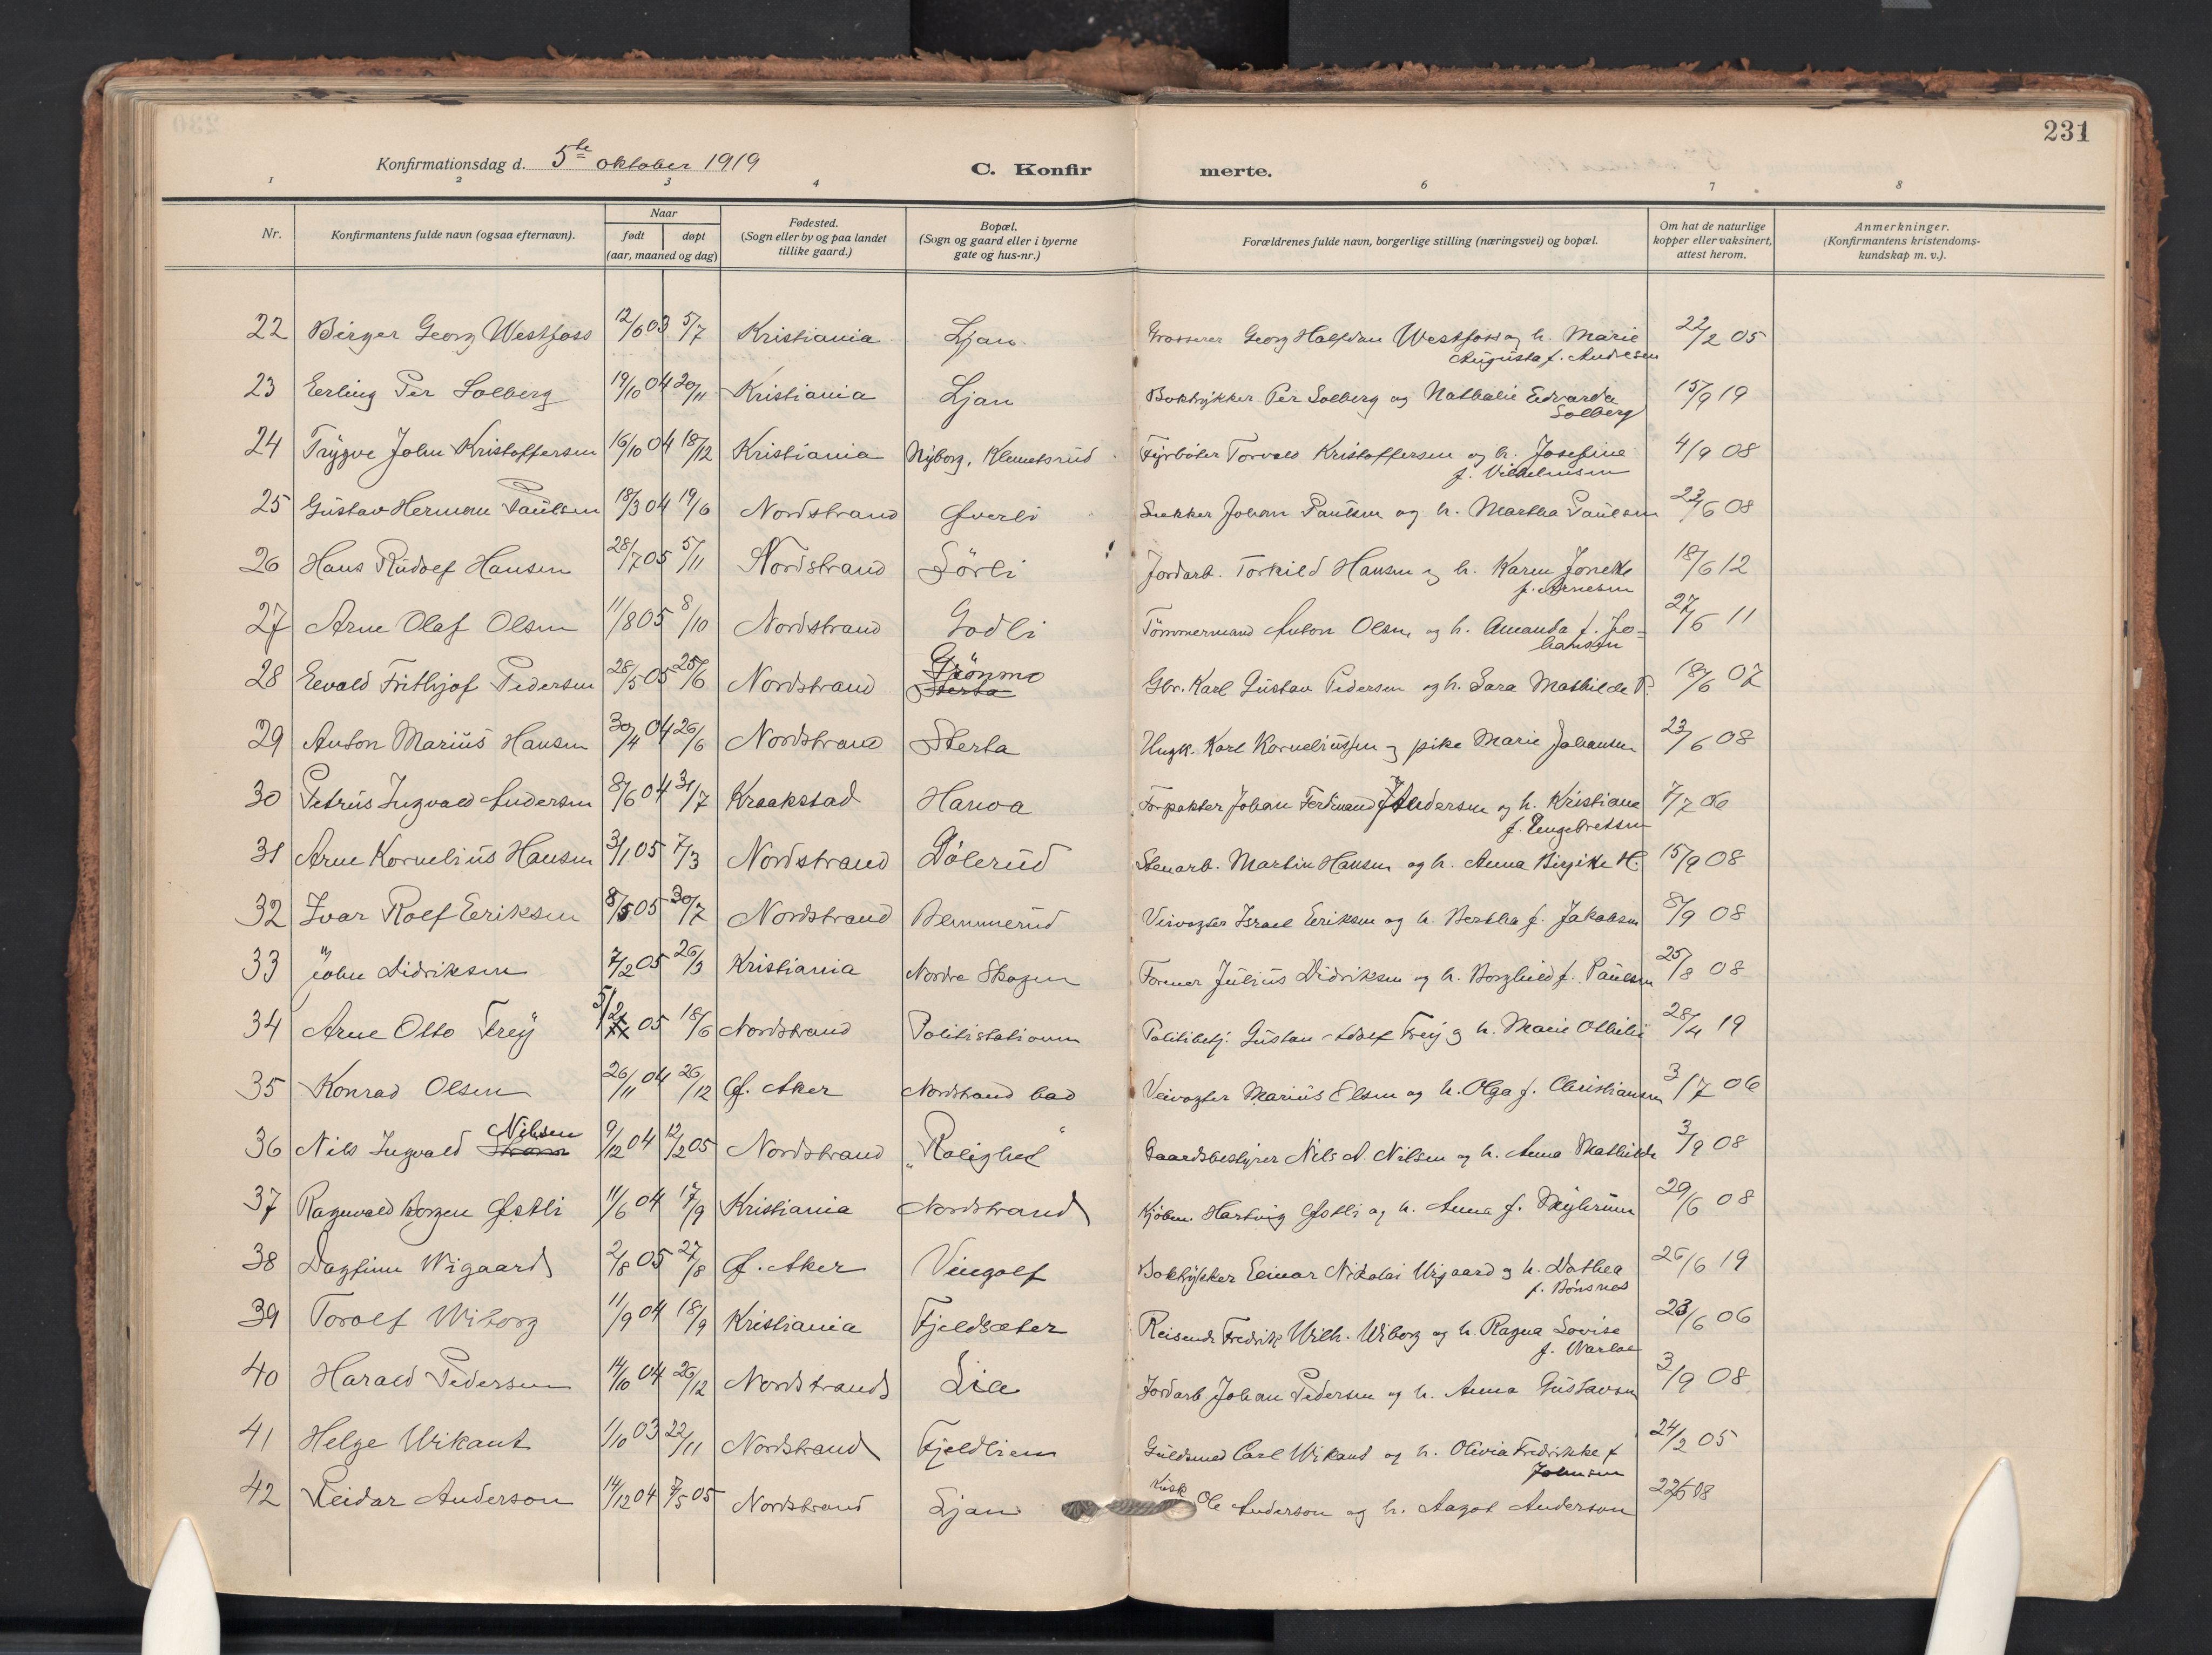 231
Konfirmationsdag d. 5te oktober 1919
C. Konfirmerte.
1 2 3 4 6 7 8
Nr.
Konfirmantens fulde navn (ogsaa efternavn).
Naar
født døpt
(aar, maaned og dag)
Fødested.
(Sogn eller by og paa landet
tillike gaard.)
Bopæl.
(Sogn og gaard eller i byerne
gate og hus-nr.)
Forældrenes fulde navn, borgerlige stilling (næringsvei) og bopæl.
Om hat de naturlige
kopper eller vaksinert,
attest herom.
Anmerkninger.
(Konfirmantens kristendoms-
kundskap m. v.).
22 Birger Georg Westfoss 12/6 03 5/7 Kristiania Ljan Grosserer Georg Halfdan Westfoss og h. Marie 22/2 05
Augusta f. Andresen
23 Erling Per Solberg 19/10 04 20/11 Kristiania Ljan Boktrykker Per Solberg og Nathalie Edvarda 15/9 19
Solberg
24 Trygve John Kristoffersen 16/10 04 18/12 Kristiania Nyborg, Klemetsrud Fyrbøter Torvald Kristoffersen og h. Josefine 4/9 08
f. Vilhelmsen
25 Gustav Herman Paulsen 18/3 04 19/6 Nordstrand Øverli Snekker Johan Paulsen og h. Martha Paulsen 23/6 08
26 Hans Rudolf Hansen 28/7 05 5/11 Nordstrand Sörli Jordarb. Torkild Hansen og h. Karen 18/6 12
f. Arnesen
27 Arne Olaf Olsen 11/8 05 8/10 Nordstrand Godli Tömmermand Anton Olsen og h. Amanda f. Jo-
hansen 27/6 11
28 Eevald Frithjof Pedersen 28/5 05 25/6 Nordstrand Grönmo Sterta Gbr. Karl Gustav Pedersen og h. Sara Mathilde P. 18/6 07
29 Anton Marius Hansen 30/4 04 26/6 Nordstrand Sterta Ungk. Karl Korneliussen og pike Marie Johansen 23/6 08
30 Petrus Ingvald Andersen 8/6 04 31/7 Kraakstad Hanoa Forpakter Johan Ferdinand Andersen og h. Kristiane 7/7 06
f. Engebretsen
31 Arne Kornelius Hansen 3/1 05 7/3 Nordstrand Dölerud Stenarb. Martin Hansen og h. Anna Birgitte H. 15/9 08
32 Ivar Rolf Eeriksen 8/5 05 30/7 Nordstrand Remmerud Veivogter Israel Eeriksen og h. Bertha f. Jakobsen 8/9 08
33 John Didriksen 7/2 05 26/3 Kristiania Nordre Skogen Former Julius Didriksen og h. Borghild f. Paulsen 25/8 08
34 Arne Otto Frey 5/2 05 18/6 Nordstrand Politistationen Politibetj. Gustav Adolf Frey og h. Marie Othilie 28/4 19
35 Konrad Olsen 26/11 04 26/12 Ø. Aker Nordstrand bad Veivogter Marius Olsen og h. Olga f. Christiansen 3/7 06
36 Nils Ingvald Nilsen 9/12 04 12/2 05 Nordstrand "Rolighet" Gaardsbestyrer Nils N. Nilsen og h. Anna Mathilde 3/9 08
37 Ragnvald Borgen Østli 11/6 04 17/9 Kristiania Nordstrand Kjöbm. Hartvig Østli og h. Anna f. Myhrum 29/6 08
38 Dagfinn Wigaard 2/8 05 27/8 Ø. Aker Vingolf Boktrykker Eeinar Nikolai Wigaard og h. Dorthea 26/6 19
f. Bönsnes
39 Torolf Wiborg 11/9 04 18/9 Kristiania Fjeldsæter Reisende Fredrik Wilh. Wiborg og h. Ragna Lovise 23/6 06
f. Warloe
40 Harald Pedersen 14/10 04 26/12 Nordstrand Lia Jordarb. Johan Pedersen og h. Anna Gustavsen 3/9 08
41 Helge Wikant 1/10 03 22/11 Nordstrand Fjeldliem Guldsmed Carl Wikant og h. Olivia Fredrikke f. 24/2 05
Johnsen
42 Reidar Anderson 14/12 04 7/5 05 Nordstrand Ljan Kusk Ole Anderson og h. Aagot Anderson 22/6 08